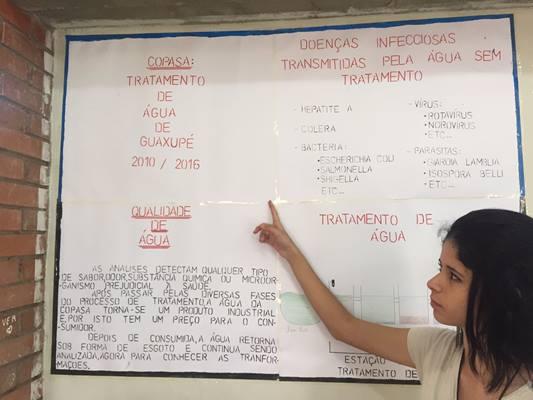 COPASA:
TRATAMENTO
DE
ÁGUA
DE
GUAXUPÉ
2010 / 2016
DOENÇAS INFECCIOSAS
TRANSMITIDAS PELA ÁGUA SEM
TRATAMENTO
- HEPATITE A
- COLERA
- BACTERIA:
•ESCHERICHIA COLI
•SALMONELLA
•SHIGELLA
ETC...
- VÍRUS:
•ROTAVÍRUS
•NOROVÍRUS
•ETC...
- PARASITAS:
•GIARDIA LAMBLIA
•ISOSPORA BELLI
•ETC...
QUALIDADE
DE
ÁGUA
AS ANÁLISES DETECTAM QUALQUER TIPO
DE SABOR,ODOR,SUBSTÂNCIA QUÍMICA OU MICROOR-
GANISMO PREJUDICIAL À SAÚDE.
APÓS PASSAR PELAS DIVERSAS FASES
DO PROCESSO DE TRATAMENTO,A ÁGUA DA
COPASA TORNA-SE UM PRODUTO INDUSTRIAL
E,POR ISTO TEM UM PREÇO PARA O CON-
SUMIDOR.
DEPOIS DE CONSUMIDA,A ÁGUA RETORNA
SOB FORMA DE ESGOTO E CONTINUA SENDO
ANALIZADA,AGORA PARA CONHECER AS TRANFOR-
MAÇÕES.
TRATAMENTO DE
ÁGUA
ESTAÇÃO
TRATAMENTO DE